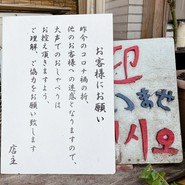 お客様にお願い
昨今のコロナ禍の折、
他のお客様への迷惑となりますので、
大声でのおしゃべりは
お控え頂きますよう、
ご理解、ご協力をお願い致します
店主
迎
ませ
시오